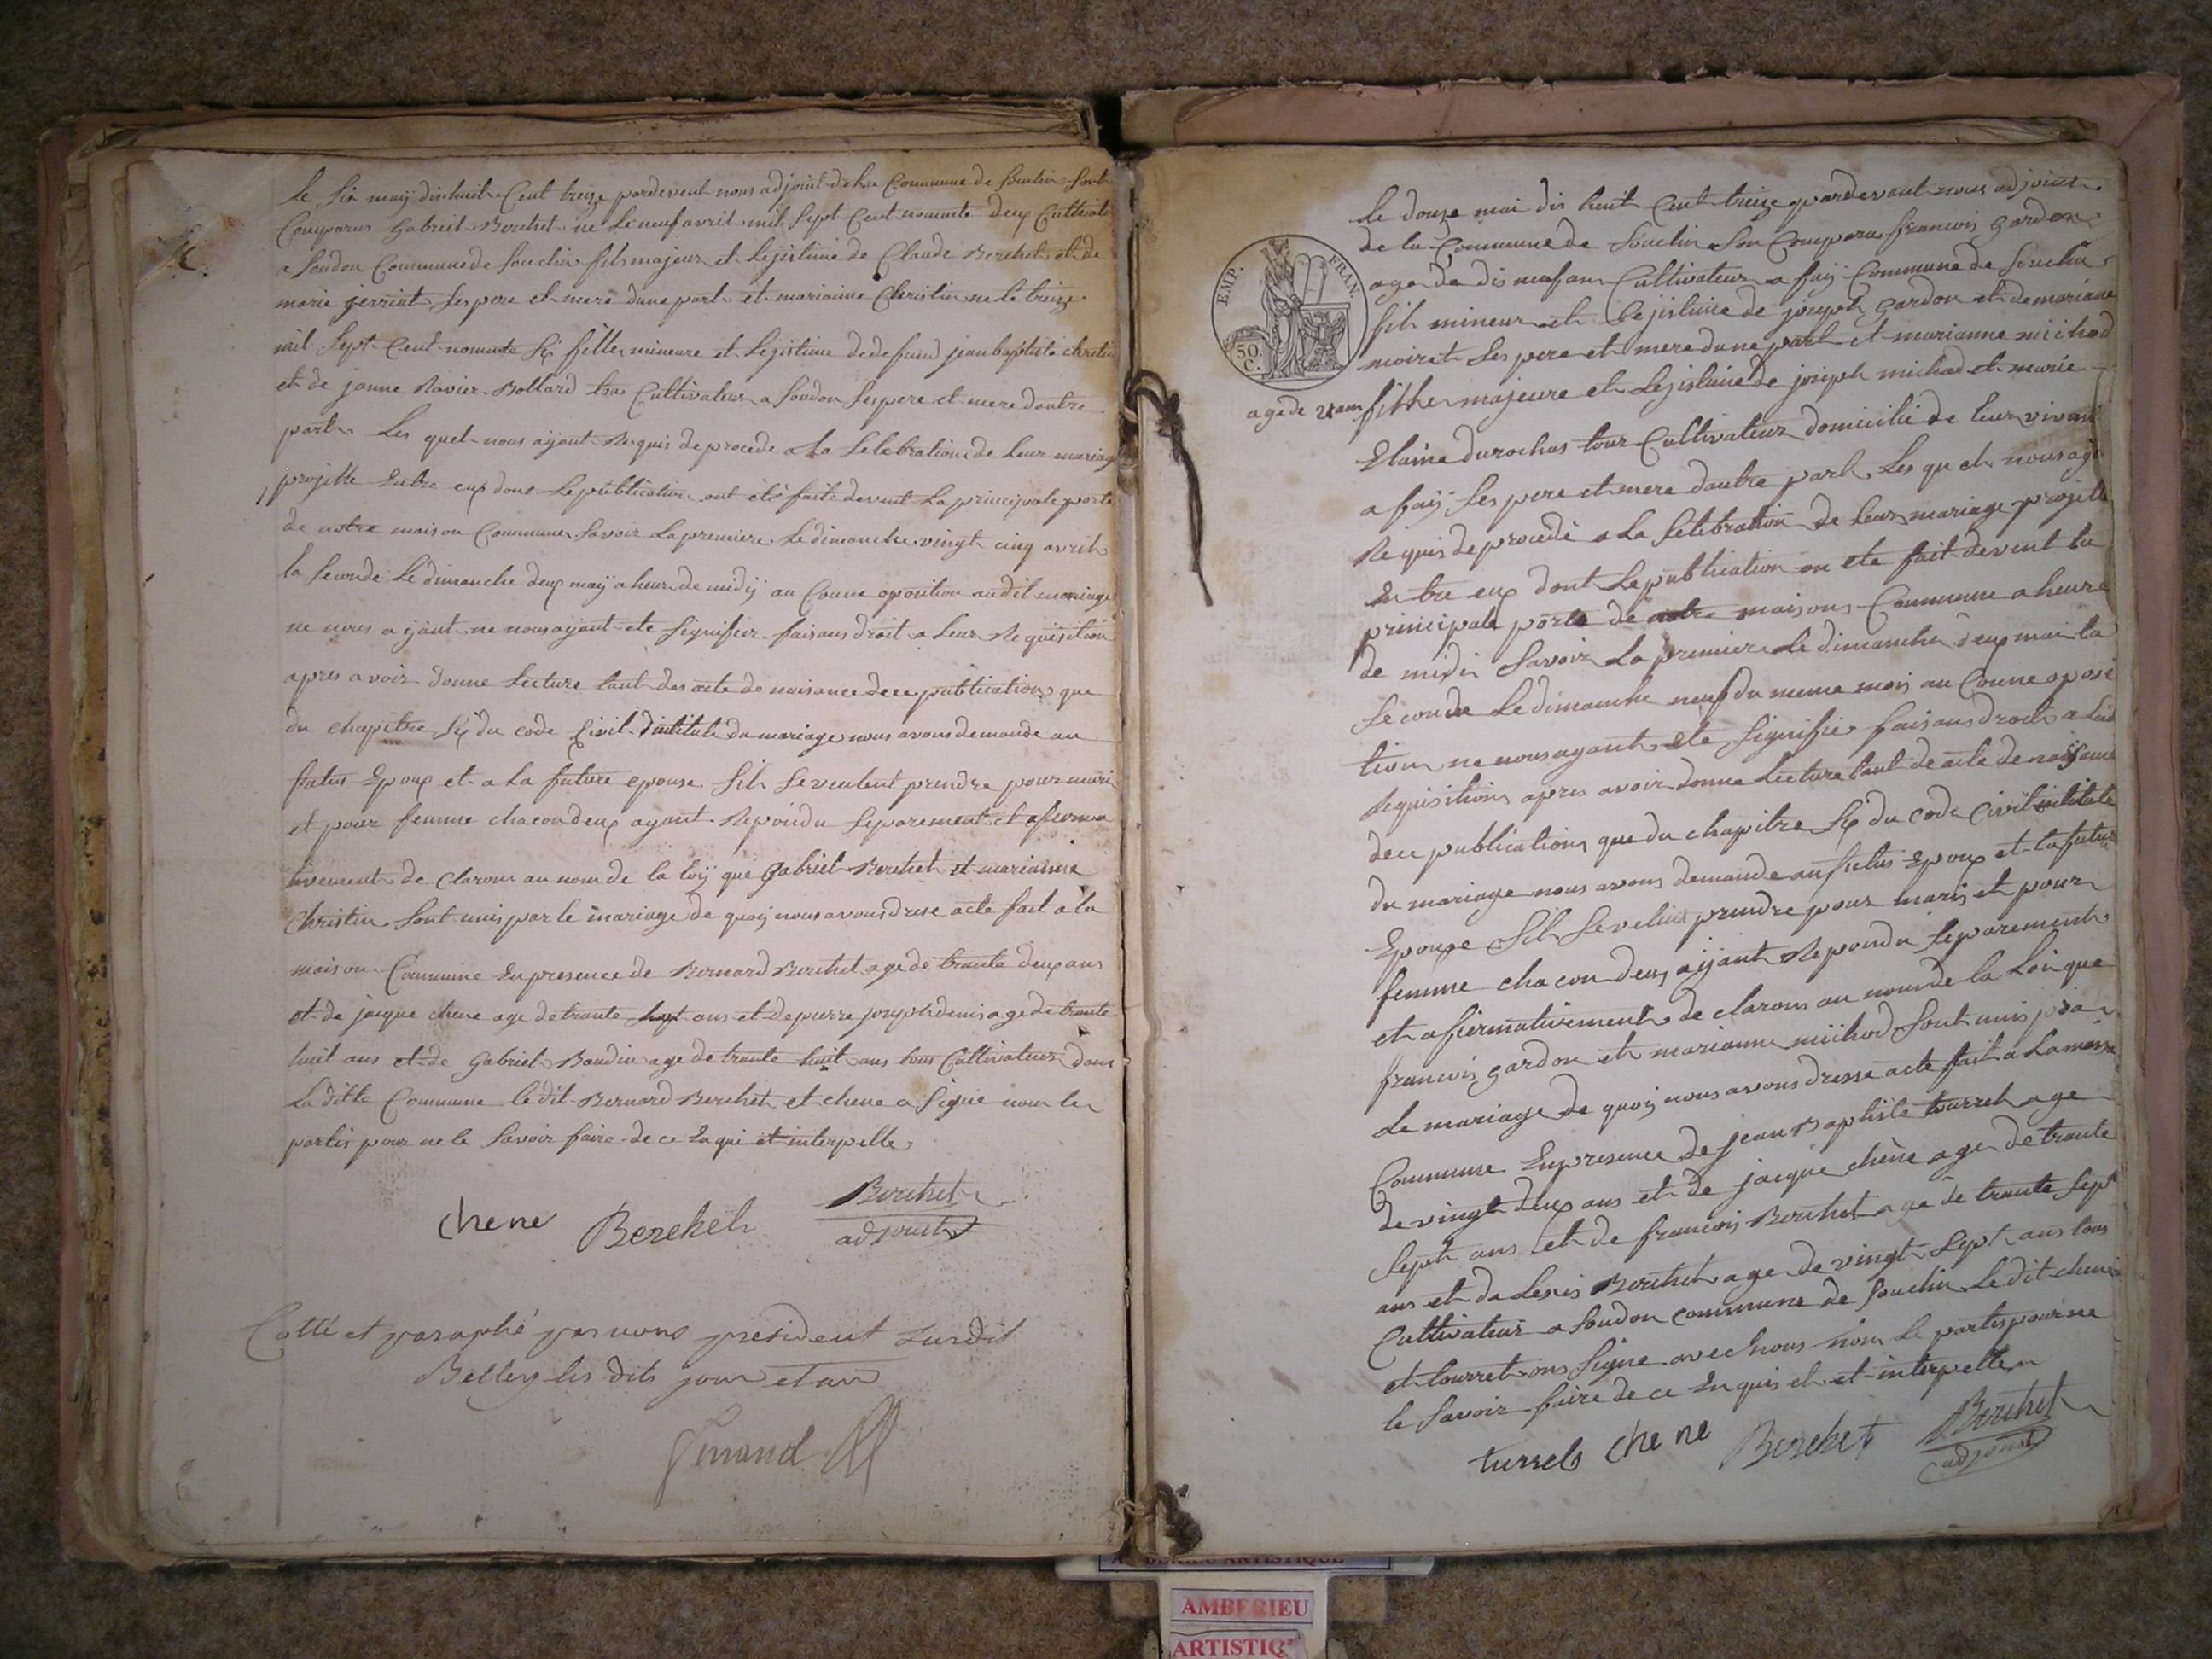 le Six maÿ dishuit Cent treize pardevent nous adjoint de la Commune de Souclin sont
Comparus Gabriel Berchet ne le neuf avril mil Sept Cent nonente deux Cultivate
a Soudon Commune de Souclin fils majeur et Lejistime de Claude Berchet et de
marie jerriat Ses pere et mere dune part et marianne Christin ne le treize
mil Sept Cent nonente Six fille mineure et Lejistime de defund jean baptiste
et de janne Ravier Bollard tou Cultivateur a Soudon Ses pere et mere dautre
part Les quel nous aÿant Requis de procede a La Selebration de Leur mariage
projette Entre eux dont Le publication ont été faite devent La principale porte
de notre maison Commune Savoir La premiere Le dimanche vingt cinq avril
la Seconde Le dimanche deux maÿ a heure de midÿ au Coune oposition audit mariage
ne nous aÿant ne nous aÿant ete Signifier faisans droit a Leur Requisition
apres avoir donne Lecture tant des acte de naisance de ce publication que
du chapitre Six du code Civil intitule du mariage nous avons demande au
futur Epoux et a La future epouse Sil Se veulent prendre pour mari
et pour femme chacon deux ayant Repondu Separement et afierma
tivement de Clarons au nom de la loÿ que Gabriel Berchet et marianne
Christin Sont unis par le mariage de quoÿ nous avous drese acte fait a la
maison Commune En presence de Bernard Berchet age de trante deux ans
et de jacque chene age de trante Sept ans et de pierre joseph denis age de trante
huit ans et de Gabriel Baudin age de trante huit ans tous Cultivateur dans
La ditte Commune le dit Bernard Berchet et chene a Signe non les
partis pour ne le Savoir faire de ce Enqui et interpelle
chene Berchet Berchet
adjoint
Cotté et paraphé par nous président Susdit
Belley les dits jour et an
le douze mai dis huit Cent treize pardevant nous adjoint
de la Commune de Souclin Son Comparu francois gardon
age de dis neuf ans Cultivateur a faÿ Commune de Souclin
EMP. FRAN.
50.
C.
fil mineur et Lejistime de joseph gardon et de mariane
moiret Ses pere et mere dune part et marianne michod
agede 21 ans fille majeure et Lejistime de joseph michod et marie
Elaine durochas tour Cultivateur domicilie de leur vivant
a faÿ Ses pere et mere dautre part Les quel nous aÿa
Requis de procede a La Selebration de Leur mariage projette
Entre eux dont Le publication on ete fait devent La
principale porte de notre maisons Commune a heure
de midi Savoir La premiere Le dimanche deux mai la
Seconde Le dimanche neuf du meme mois au Coune oposi
tion ne nous ayant ete Signifie faisans droit a
Requisitions apres avoir donne Lecture tant de acte de naissance
de ce publications que du chapitre Six du code Civil intitule
du mariage nous avons demande au futur Epoux et la future
Epouse Sil Se prendre pour maris et pour
femme chacon deux aÿant Repondu Separement
et afiermativement de clarons au nom de la Loi que
francois gardon et marianne michod Sont unis par
Le mariage de quoy nous avons dresse acte fait a La
Commune En presence de jean Baptiste tourret age
de vingt deux ans et de jacque chène age de trante
Sept ans et de francois Berchet age de trante Sept
ans et de Berchet age de vingt Sept ans tous
Cultivateur a Soudon commune de Souclin Le dit chene
et tourret ons Signe avec nous non le partis pour ne
le Savoir faire de ce Enquis et et interpelle
turrel chene Berchet Berchet
adjoint
AMBERIEU ARTISTIQUE
AMBERIEU
ARTISTIQ